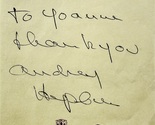 To Yoanne
thank you
audrey
Hepburn